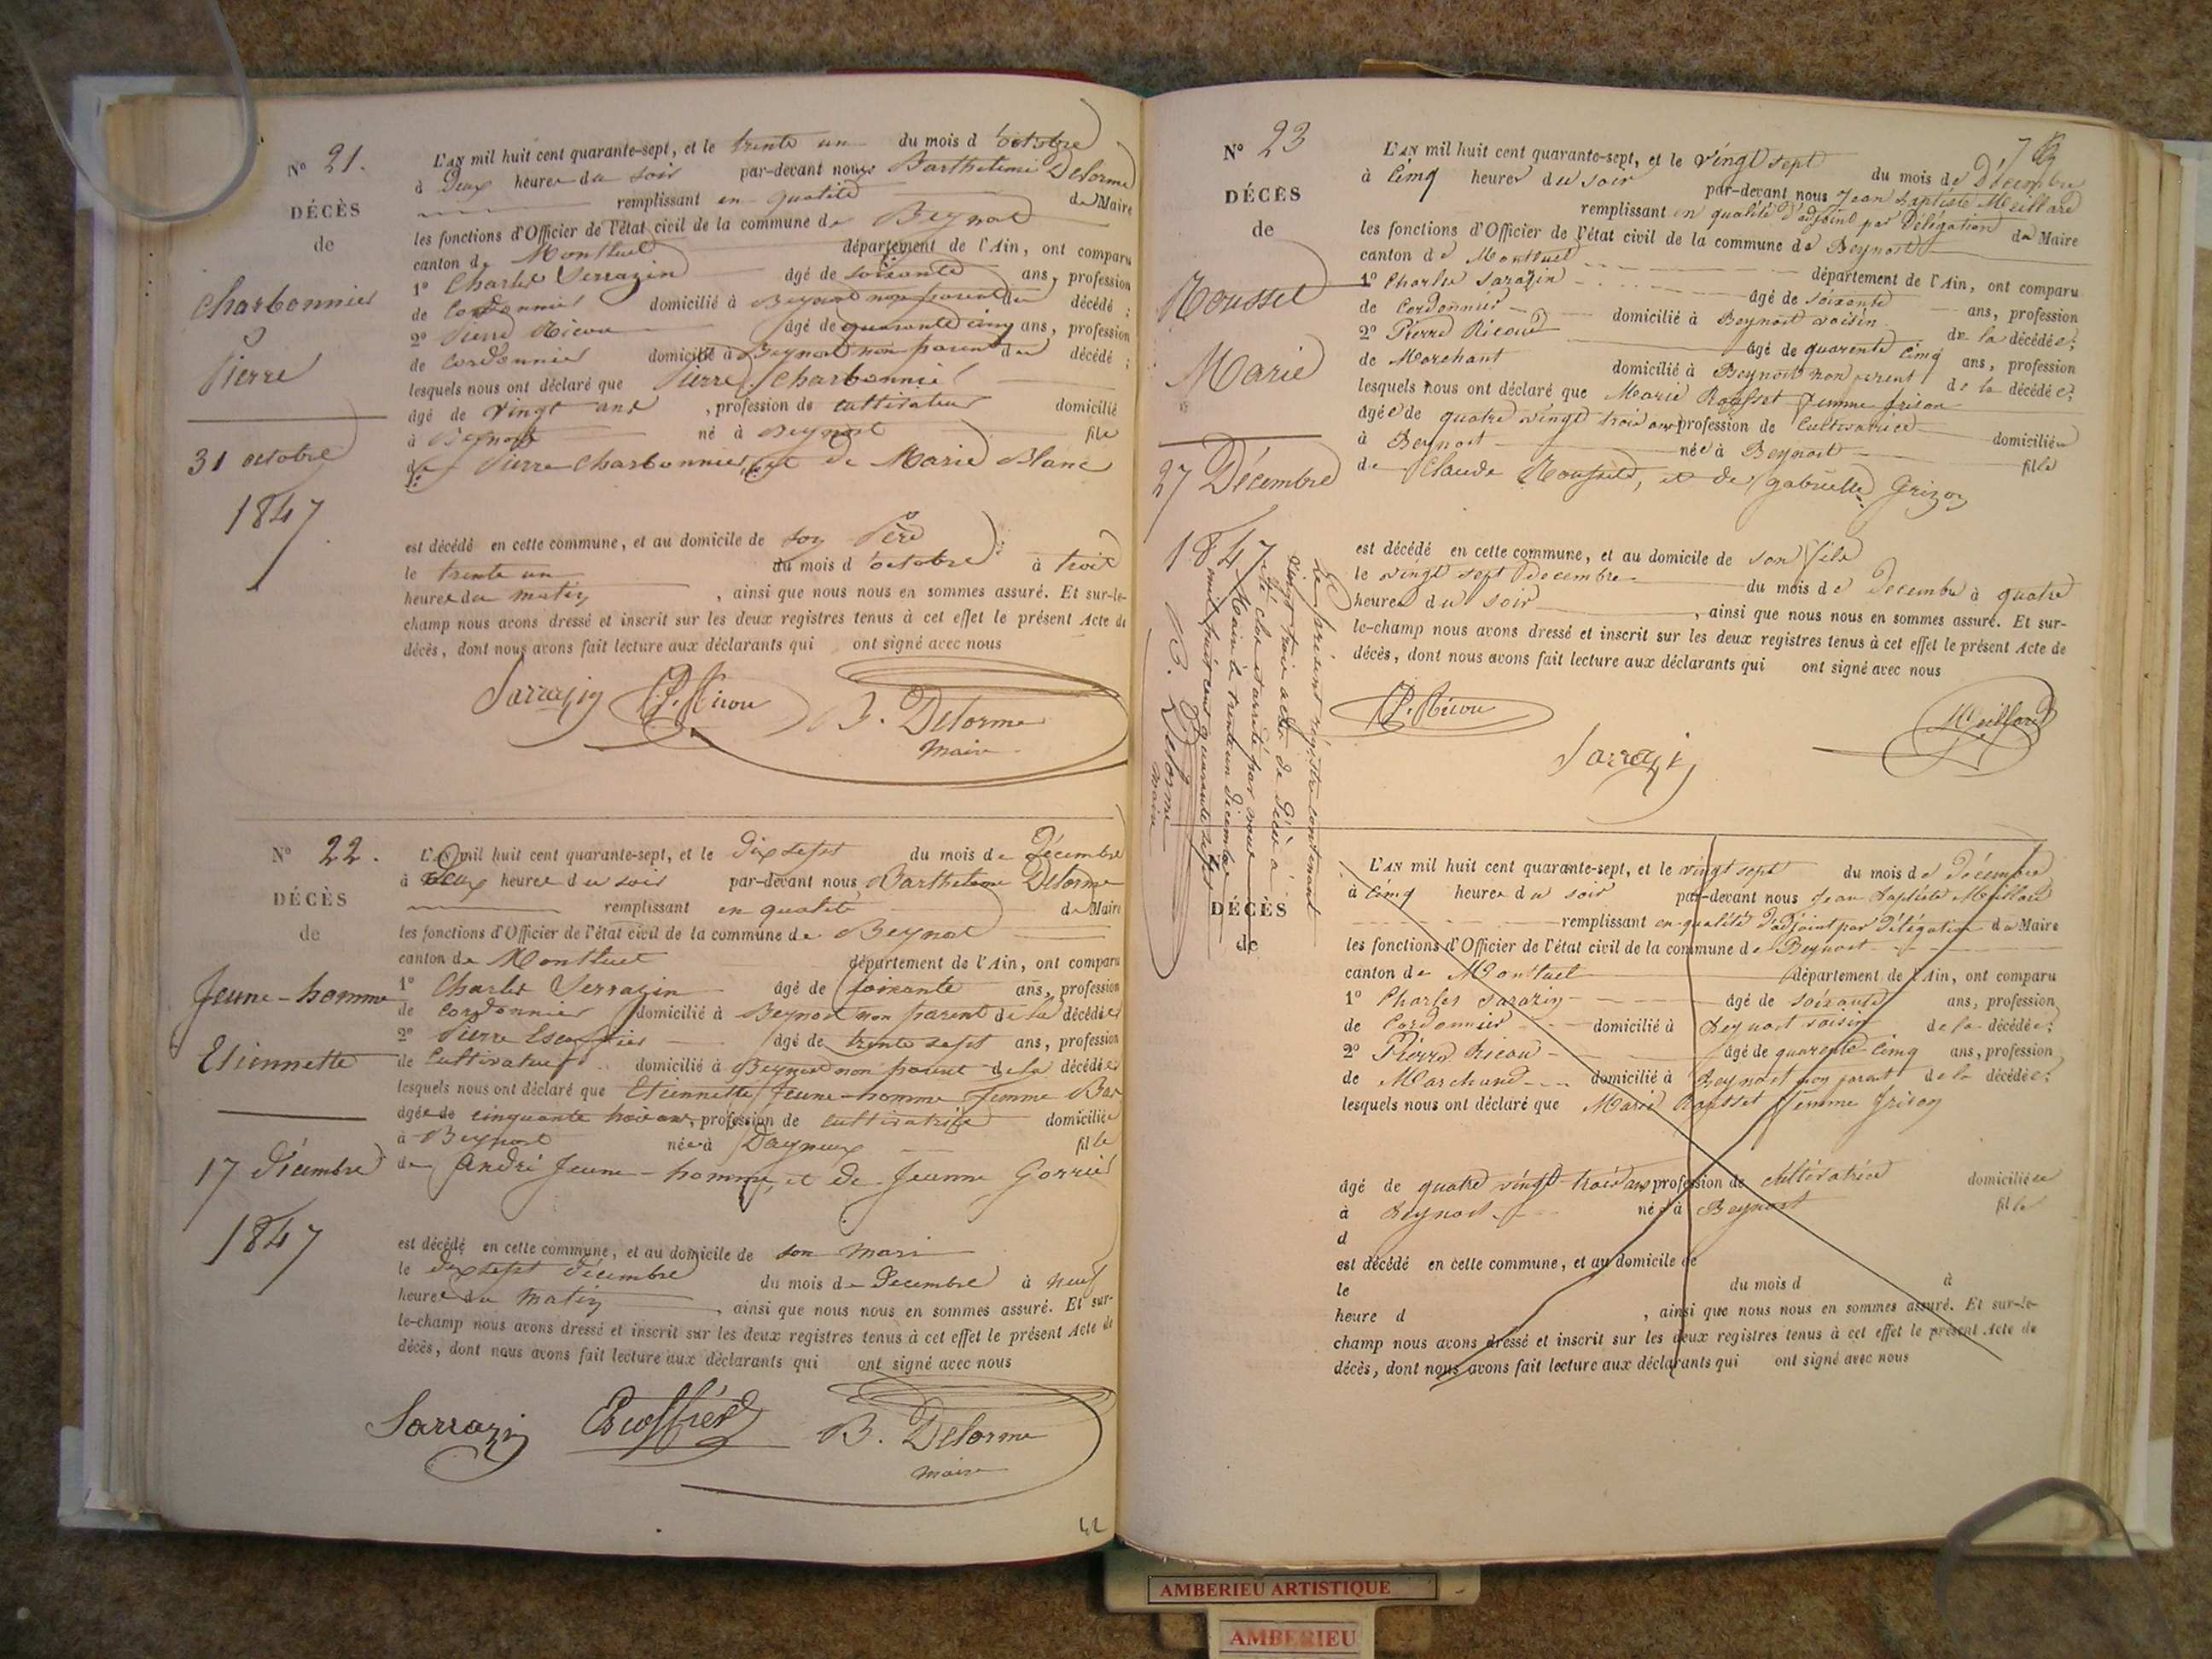 N° 21.
DÉCÈS
de
Charbonnier
Pierre
31 octobre
1847
L'AN mil huit cent quarante-sept, et le trente un du mois d'octobre
à Deux heures du soir par-devant nous Barthelemi Delorme
remplissant en qualité de Maire
les fonctions d'Officier de l'état civil de la commune de Beynost
canton de Montluel département de l'Ain, ont comparu
1° Charles Serrazin âgé de soixante ans, profession
de Cordonnier domicilié à Beynost non parent du décédé ;
2° Pierre Ricou âgé de quarante cinq ans, profession
de cordonnier domicilié à Beynost non parent du décédé ;
lesquels nous ont déclaré que Pierre Charbonnier
âgé de vingt ans, profession de cultivateur domicilié
à Beynost né à Beynost fils
de Pierre Charbonnier, et de Marie Blanc
est décédé en cette commune, et au domicile de son Père
le trente un du mois d'octobre à trois
heures du matin, ainsi que nous nous en sommes assuré. Et sur-le-
champ nous avons dressé et inscrit sur les deux registres tenus à cet effet le présent Acte de
décès, dont nous avons fait lecture aux déclarants qui ont signé avec nous
Sarrazin P. Ricou B. Delorme
maire
N° 22.
DÉCÈS
de
Jeune-homme
Etiennette
17 Décembre
1847
L'AN mil huit cent quarante-sept, et le dix sept du mois de Décembre
à Deux heures du soir par-devant nous Barthelemi Delorme
remplissant en qualité de Maire
les fonctions d'Officier de l'état civil de la commune de Beynost
canton de Montluel département de l'Ain, ont comparu
1° Charles Serrazin âgé de soixante ans, profession
de cordonnier domicilié à Beynost non parent de la décédée
2° Pierre Escoffier âgé de trente sept ans, profession
de Cultivateur domicilié à Beynost non parent de la décédée
lesquels nous ont déclaré que Etiennette Jeune-homme femme
âgée de cinquante trois ans, profession de cultivatrice domiciliée
à Beynost née à Dagneux fille
de André Jeune-homme, et de Jeanne Gorrié
est décédé en cette commune, et au domicile de son mari
le dix sept décembre du mois de Décembre à neuf
heures du matin, ainsi que nous nous en sommes assuré. Et sur-
le-champ nous avons dressé et inscrit sur les deux registres tenus à cet effet le présent Acte de
décès, dont nous avons fait lecture aux déclarants qui ont signé avec nous
Sarrazin Escoffier B. Delorme
maire
42
N° 23
DÉCÈS
de
Rousset
Marie
27 Décembre
1847
L'AN mil huit cent quarante-sept, et le vingt sept du mois de Décembre
à cinq heures du soir par-devant nous Jean Baptiste Meillard
remplissant en qualité d'adjoint par Délégation du Maire
les fonctions d'Officier de l'état civil de la commune de Beynost
canton de Montluel département de l'Ain, ont comparu
1° Charles Sarazin âgé de soixante ans, profession
de Cordonnier domicilié à Beynost voisin de la décédée ;
2° Pierre Ricoud âgé de quarente cinq ans, profession
de Marchant domicilié à Beynost non parent de la décédée ;
lesquels nous ont déclaré que Marie Rousset femme Grison
âgée de quatre vingt trois ans profession de Cultivatrice domiciliée
à Beynost née à Beynost fille
de Claude Rousset, et de Gabrielle Grizon
est décédé en cette commune, et au domicile de son fils
le vingt sept Decembre du mois de Decembre à quatre
heures du soir, ainsi que nous nous en sommes assuré. Et sur-
le-champ nous avons dressé et inscrit sur les deux registres tenus à cet effet le présent Acte de
décès, dont nous avons fait lecture aux déclarants qui ont signé avec nous
P. Ricou Sarrazin Meillard
Le présent régistre contenant
vingt trois actes de Décès a
été clos et arrêté par nous
Maire le trente un décembre
mil huit cent quarante sept
B. Delorme
maire
DÉCÈS
de
L'AN mil huit cent quarante-sept, et le vingt sept du mois de Décembre
à cinq heures du soir par-devant nous Jean Baptiste Meillard
remplissant en qualité d'adjoint par Délégation du Maire
les fonctions d'Officier de l'état civil de la commune de Beynost
canton de Montluel département de l'Ain, ont comparu
1° Charles Sarazin âgé de soixante ans, profession
de Cordonnier domicilié à Beynost voisin de la décédée ;
2° Pierre Ricou âgé de quarente cinq ans, profession
de Marchand domicilié à Beynost non parent de la décédée ;
lesquels nous ont déclaré que Marie Rousset femme Grison
âgé de quatre vingt trois ans profession de cultivatrice domiciliée
à Beynost née à Beynost fille
d
est décédé en cette commune, et au domicile de
le du mois d à
heure d , ainsi que nous nous en sommes assuré. Et sur-le-
champ nous avons dressé et inscrit sur les deux registres tenus à cet effet le présent Acte de
décès, dont nous avons fait lecture aux déclarants qui ont signé avec nous
AMBERIEU ARTISTIQUE
AMBERIEU